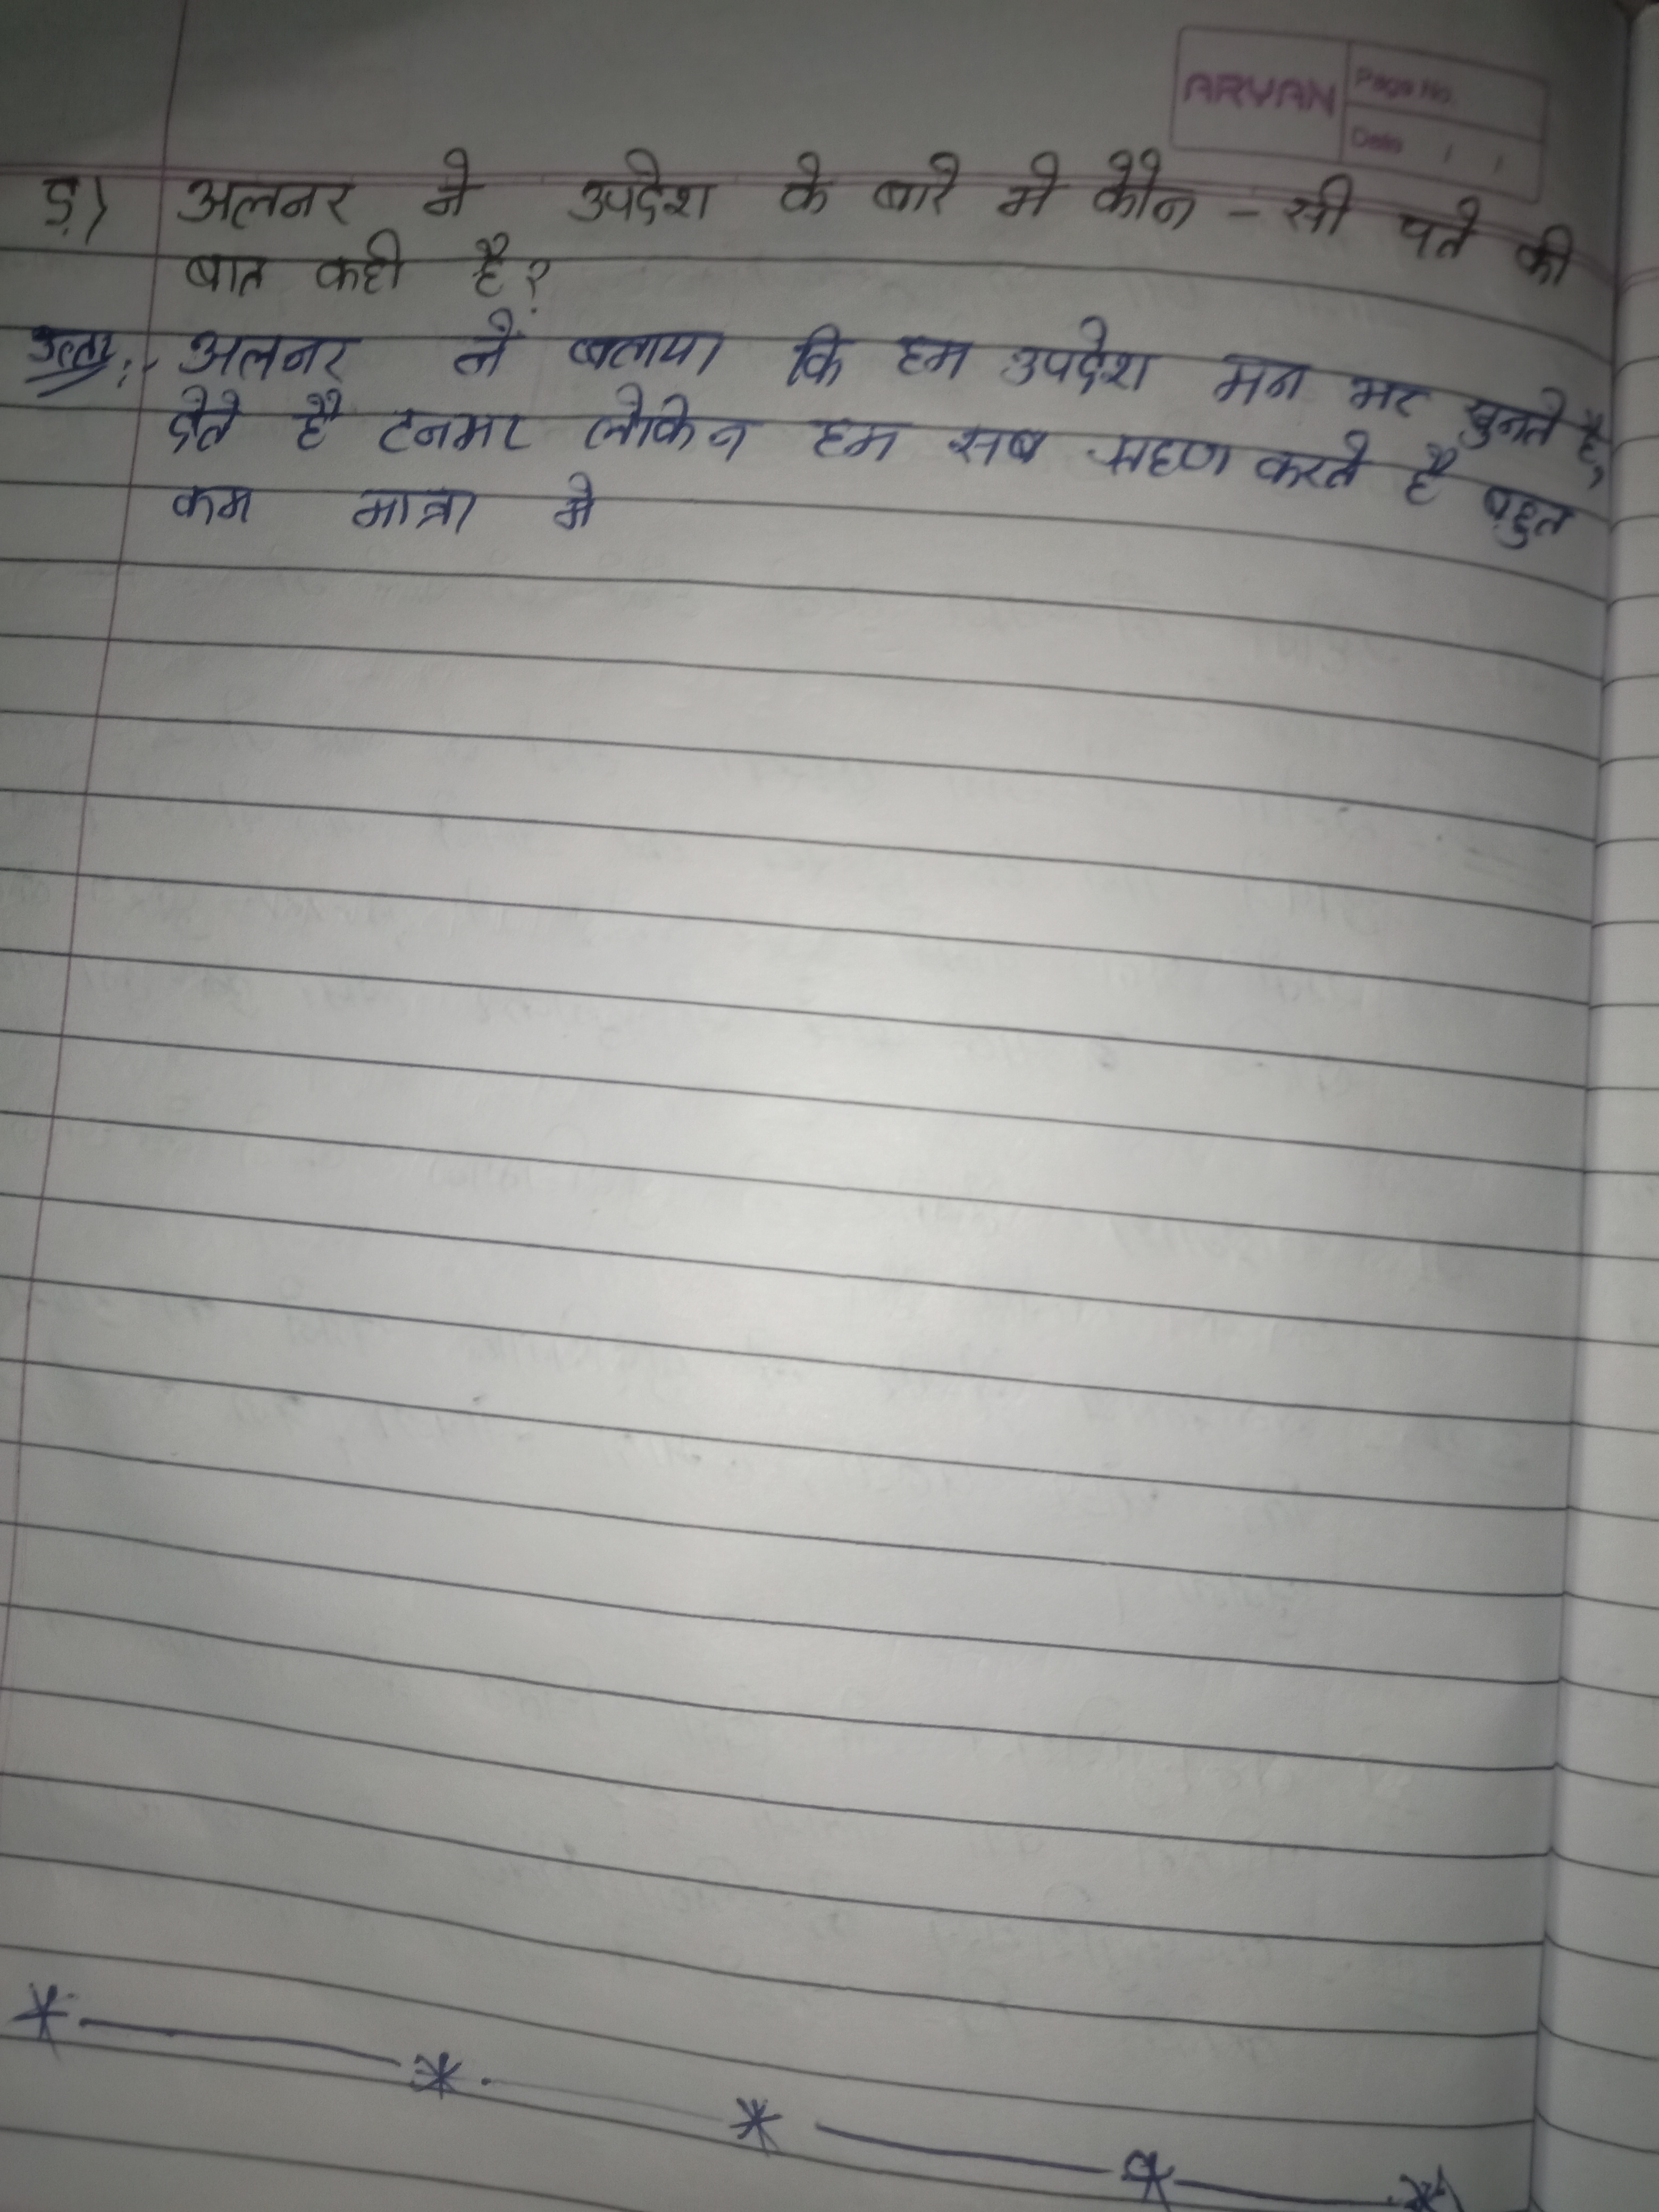 ARYAN
Page No.
Date / /
ड़) अलनर ने उपदेश के बारे मे कौन - सी पते की
बात कही है?
उत्तर:- अलनर ने बताया कि हम उपदेश मन भर सुनते है,
देते है टनभर लेकिन हम सब ग्रहण करते है बहुत
कम मात्रा मे